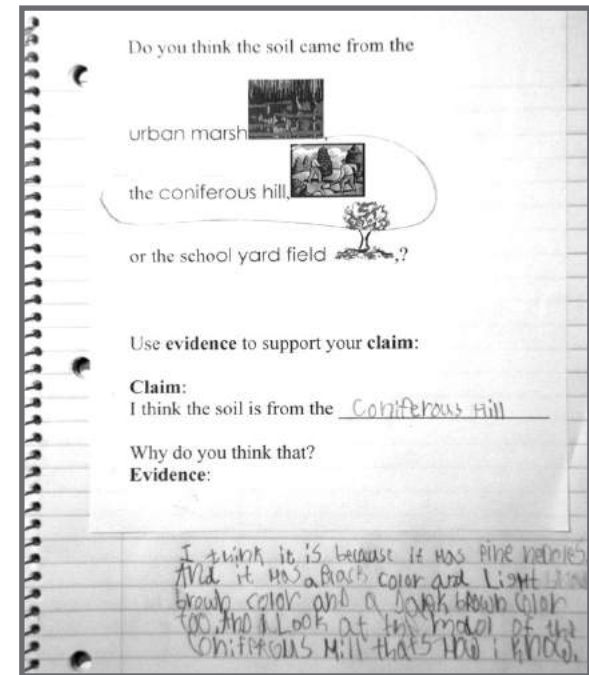 Do you think the soil came from the
urban marsh,
the coniferous hill,
or the school yard field ,?
Use evidence to support your claim:
Claim:
I think the soil is from the Coniferous Hill
Why do you think that?
Evidence:
I think it is because it Has Pine neeDles
And it Has a Black color and Light
brown color and a Dark brown Color
too, And I Look at the model of the
Coniferous Hill that's How i know.